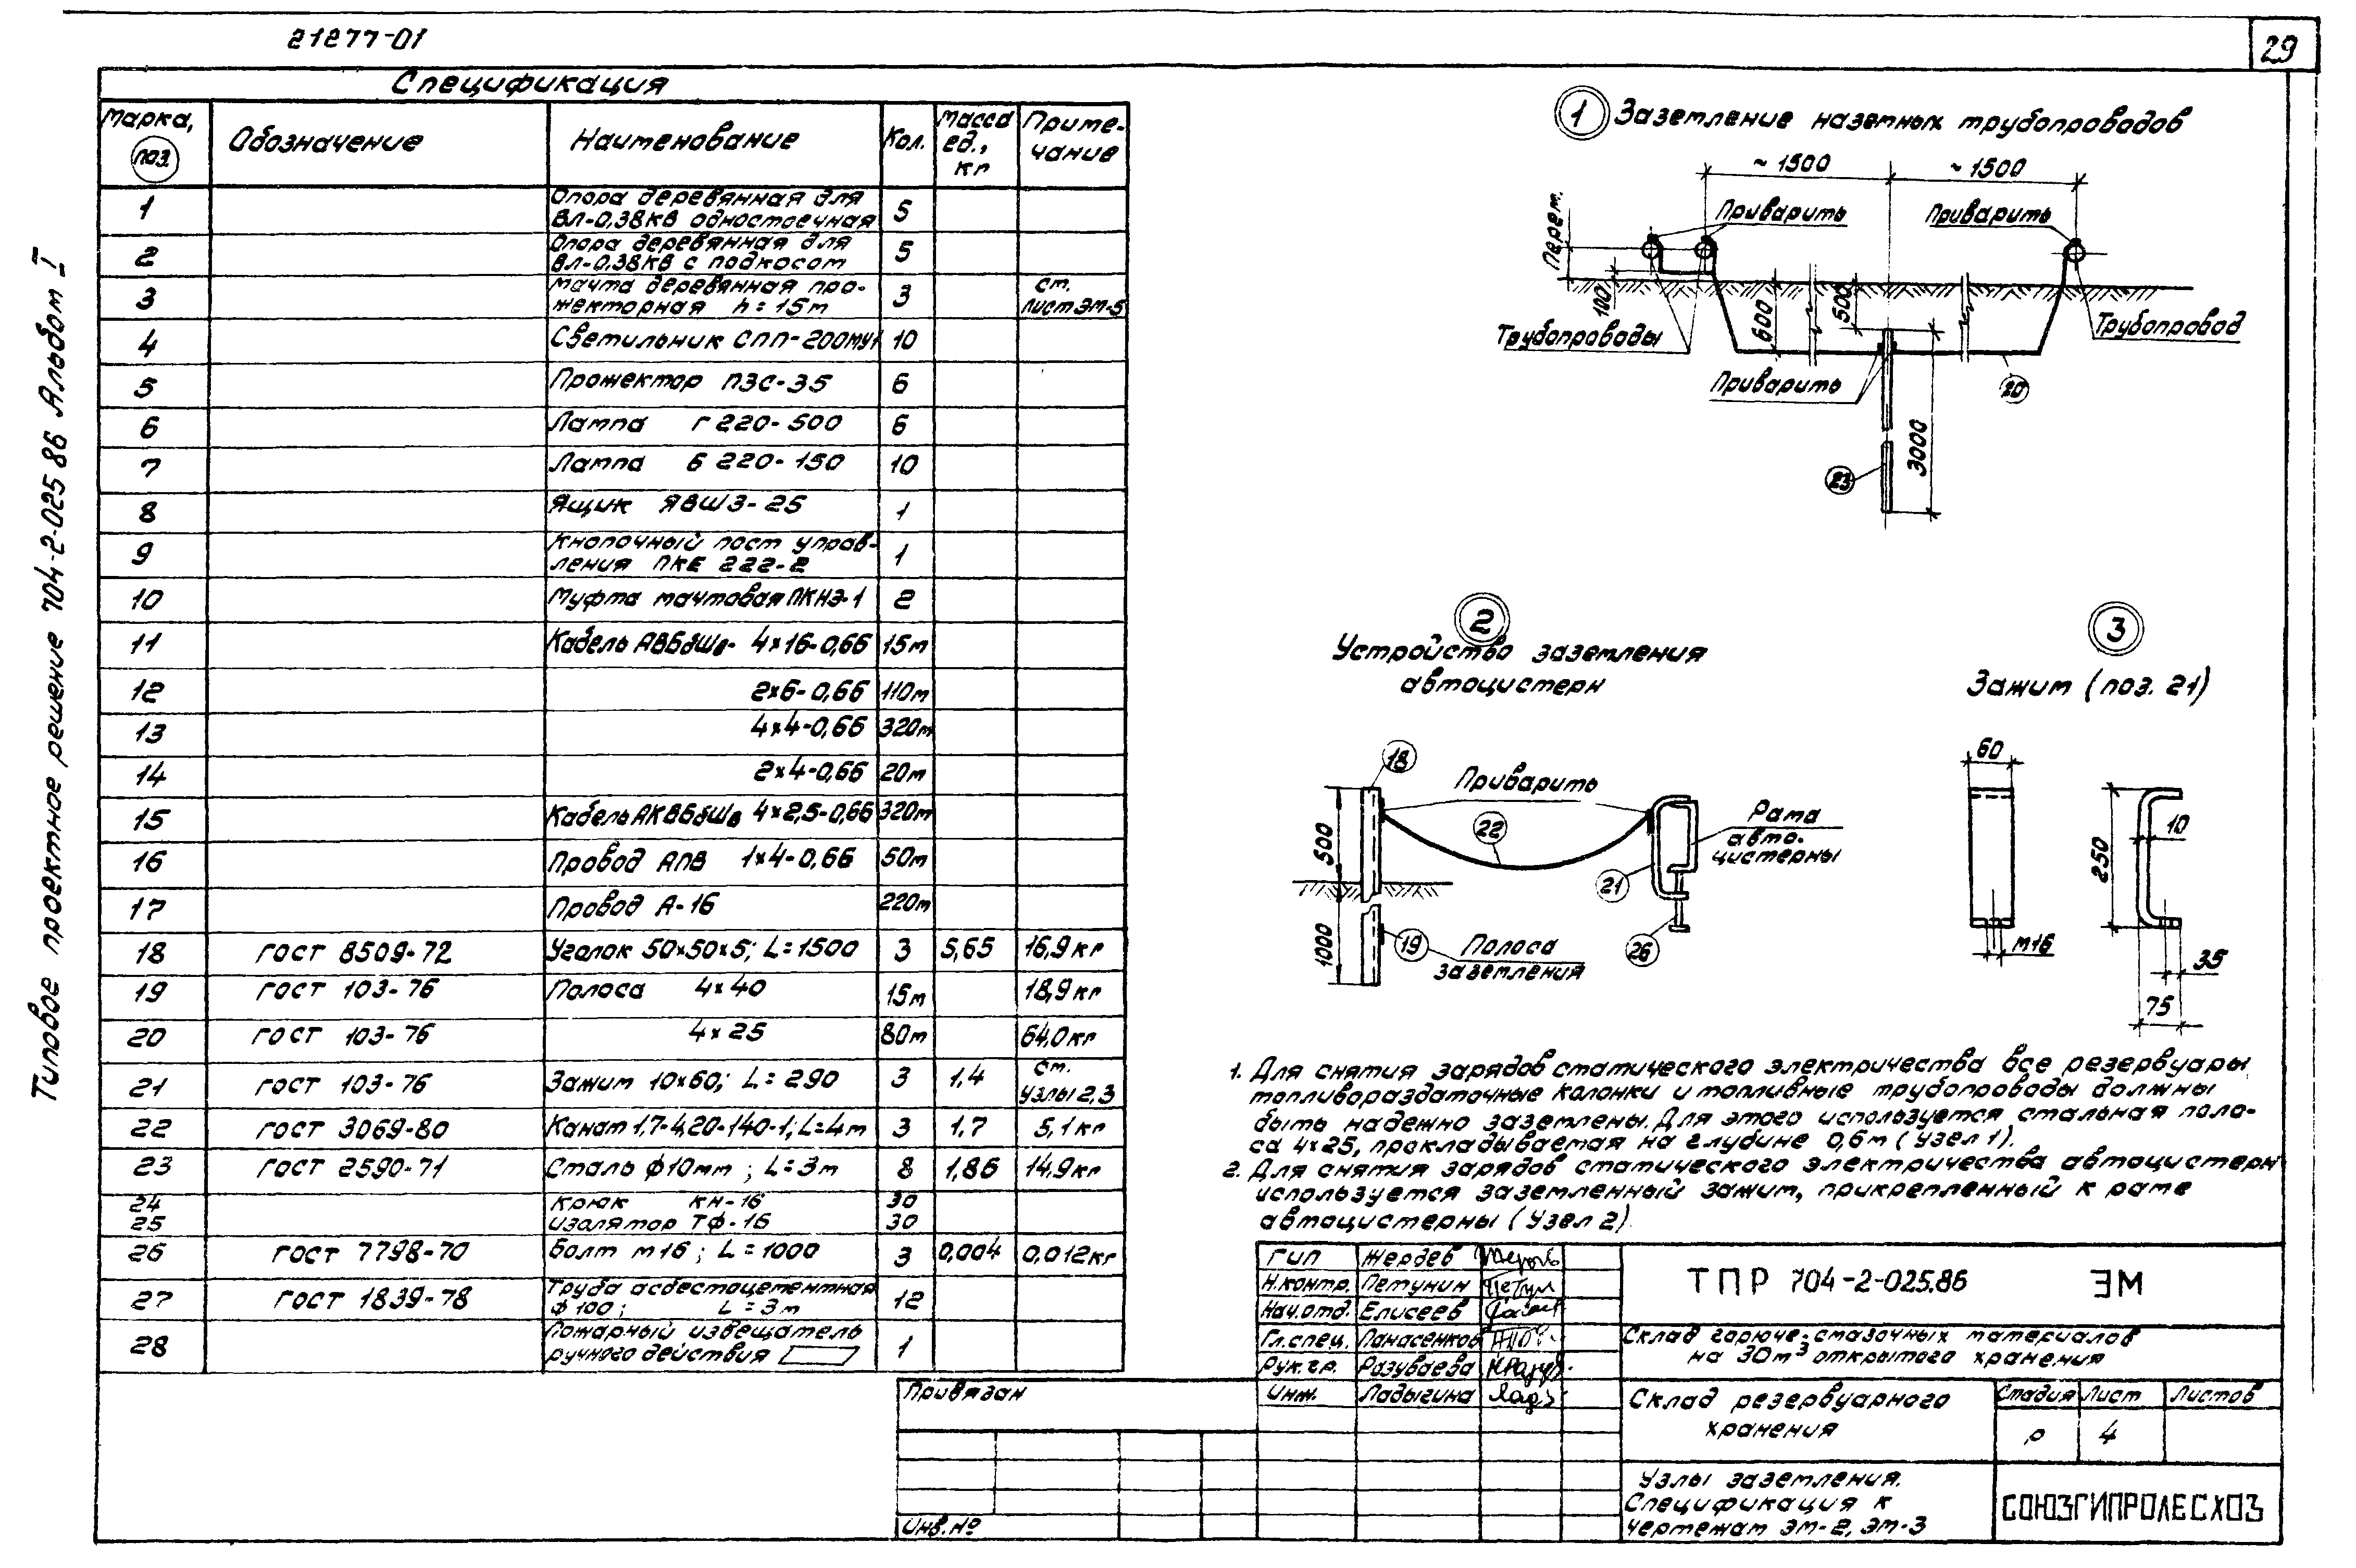 21277-01
29
Типовое проектное решение 704-2-025.86 Альбом I
Спецификация
Марка, поз. Обозначение Наименование Кол. Масса ед., кг Примечание
1 Опора деревянная для ВЛ-0,38кВ одностоечная 5
2 Опора деревянная для ВЛ-0,38кВ с подкосом 5
3 Мачта деревянная прожекторная h=15м 3 См. лист ЭМ-5
4 Светильник СПП-200МУ1 10
5 Прожектор ПЗС-35 6
6 Лампа Г 220-500 6
7 Лампа Б 220-150 10
8 Ящик ЯВШ3-25 1
9 Кнопочный пост управления ПКЕ 222-2 1
10 Муфта мачтовая ПКНЭ-1 2
11 Кабель АВБбШв- 4х16-0,66 15м
12 2х6-0,66 110м
13 4х4-0,66 320м
14 2х4-0,66 20м
15 Кабель АКВБбШв 4х2,5-0,66 320м
16 Провод АПВ 1х4-0,66 50м
17 Провод А-16 220м
18 ГОСТ 8509-72 Уголок 50х50х5; L=1500 3 5,65 16,9кг
19 ГОСТ 103-76 Полоса 4х40 15м 18,9кг
20 ГОСТ 103-76 4х25 80м 64,0кг
21 ГОСТ 103-76 Зажим 10х60; L=290 3 1,4 См. узлы 2,3
22 ГОСТ 3069-80 Канат 1,7-4,20-140-1; L=4м 3 1,7 5,1кг
23 ГОСТ 2590-71 Сталь ф10мм; L=3м 8 1,86 14,9кг
24 Крюк КН-16 30
25 Изолятор ТФ-16 30
26 ГОСТ 7798-70 Болт М16; L=1000 3 0,004 0,012кг
27 ГОСТ 1839-78 Труба асбестоцементная ф100; L=3м 12
28 Пожарный извещатель ручного действия 1
1 Заземление наземных трубопроводов
~1500 ~1500
Перем.
Приварить Приварить
100 600 500
Трубопроводы Трубопровод
Приварить
20
3000
23
2
Устройство заземления
автоцистерн
18
Приварить
22
500
Рама
авто-
цистерны
21
1000
19
Полоса
заземления
26
3
Зажим (поз. 21)
60
10
250
М16
35
75
1. Для снятия зарядов статического электричества все резервуары
топливораздаточные колонки и топливные трубопроводы должны
быть надежно заземлены. Для этого используется стальная поло-
са 4х25, прокладываемая на глубине 0,6м (узел 1).
2. Для снятия зарядов статического электричества автоцистерн
используется заземленный зажим, прикрепленный к раме
автоцистерны (узел 2).
ГИП Жердев
Н.контр. Петунин
Нач.отд. Елисеев
Гл.спец. Панасенков
Рук.гр. Разуваева
Инж. Ладыгина
Привязан
Инв.№
ТПР 704-2-025.86 ЭМ
Склад горюче-смазочных материалов
на 30м³ открытого хранения
Склад резервуарного
хранения
Стадия Лист Листов
Р 4
Узлы заземления.
Спецификация к
чертежам ЭМ-2, ЭМ-3
СОЮЗГИПРОЛЕСХОЗ